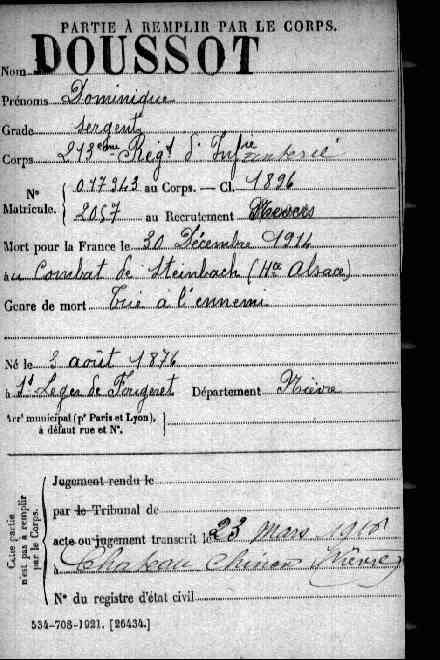 PARTIE À REMPLIR PAR LE CORPS.
Nom DOUSSOT
Prénoms Dominique
Grade Sergent
Corps 213eme Régt d'Infanterie
N° Matricule. 017343 au Corps. — Cl. 1896
2057 au Recrutement Nevers
Mort pour la France le 30 Décembre 1914
au Combat de Steinbach (Hte Alsace)
Genre de mort Tué à l'ennemi
Né le 3 août 1876
à St Leger de Fougeret Département Nièvre
Arrt municipal (pr Paris et Lyon),
à défaut rue et N°.
Cette partie n'est pas à remplir par le Corps.
Jugement rendu le
par le Tribunal de
acte ou jugement transcrit le 23 mars
à Chateau Chinon (Nièvre)
N° du registre d'état civil
534-708-1921. [26434.]